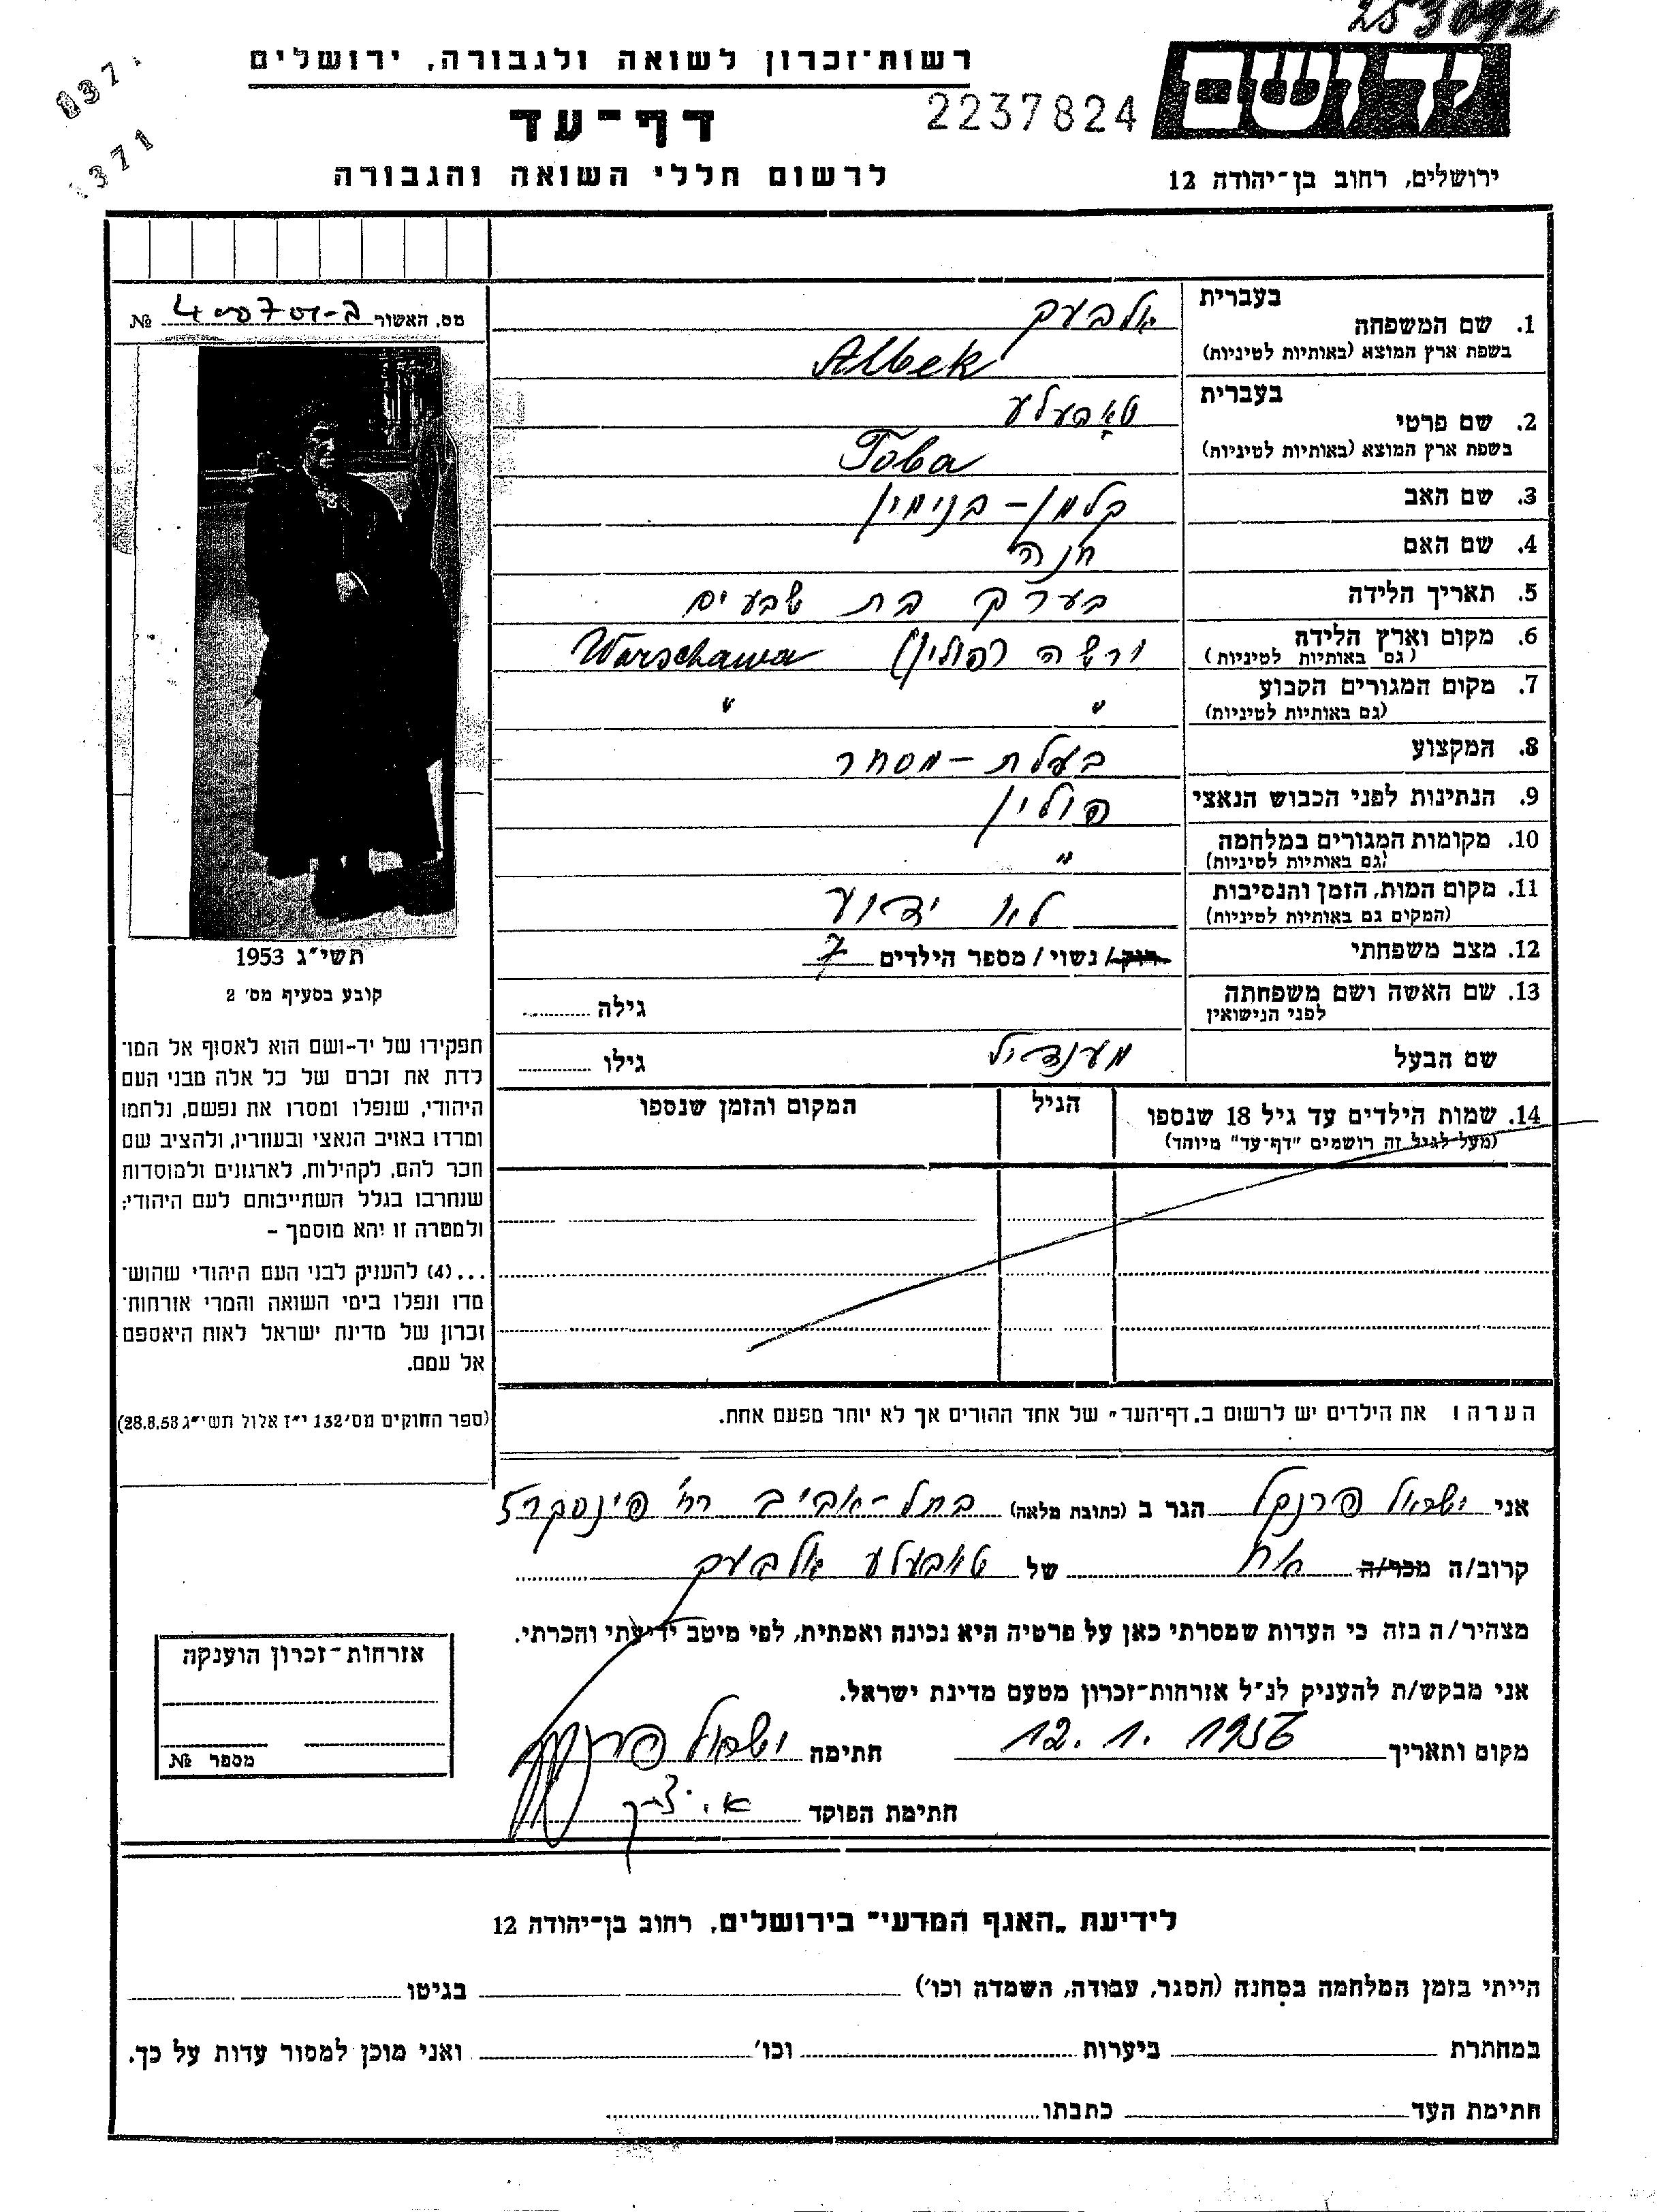 253092
רשות־זכרון לשואה ולגבורה, ירושלים
ידושם
2237824
דף־עד
לרשום חללי השואה והגבורה
ירושלים, רחוב בן־יהודה 12
371
בעברית
אלבעק
1. שם המשפחה
בשפת ארץ המוצא (באותיות לטיניות)
Albek
בעברית
טאָבעלע
2. שם פרטי
בשפת ארץ המוצא (באותיות לטיניות)
Toba
3. שם האב קלמן – בנימין
4. שם האם חנה
5. תאריך הלידה בערך בת שבעים
6. מקום וארץ הלידה ורשה (פולין) Warschawa
(גם באותיות לטיניות)
7. מקום המגורים הקבוע " "
(גם באותיות לטיניות)
8. המקצוע בעלת – מסחר
9. הנתינות לפני הכבוש הנאצי פולין
10. מקומות המגורים במלחמה "
(גם באותיות לטיניות)
11. מקום המות, הזמן והנסיבות לא ידוע
(המקום גם באותיות לטיניות)
12. מצב משפחתי רוק/ נשוי / מספר הילדים 7
13. שם האשה ושם משפחתה גילה
לפני הנישואין
שם הבעל מענדיל גילו
14. שמות הילדים עד גיל 18 שנספו הגיל המקום והזמן שנספו
(מעל לגיל זה רושמים "דף־עד" מיוחד)
מס. האשור №
תשי"ג 1953
קובע בסעיף מס' 2
תפקידו של יד-ושם הוא לאסוף אל המו־
לדת את זכרם של כל אלה מבני העם
היהודי, שנפלו ומסרו את נפשם, נלחמו
ומרדו באויב הנאצי ובעוזריו, ולהציב שם
וזכר להם, לקהילות, לארגונים ולמוסדות
שנחרבו בגלל השתייכותם לעם היהודי;
ולמטרה זו יהא מוסמך –
...(4) להעניק לבני העם היהודי שהוש־
מדו ונפלו בימי השואה והמרי אזרחות־
זכרון של מדינת ישראל לאות היאספם
אל עמם.
(ספר החוקים מס' 132 י"ז אלול תשי"ג 28.8.53)
הערה: את הילדים יש לרשום ב„דף־העד" של אחד ההורים אך לא יותר מפעם אחת.
אני ישראל פרנקל הגר ב (כתובת מלאה) בתל-אביב רח' פינסקר
קרוב/ה מכר/ה אח של טאבעלע אלבעק
מצהיר/ה בזה כי העדות שמסרתי כאן על פרטיה היא נכונה ואמתית, לפי מיטב ידיעתי והכרתי.
אני מבקש/ת להעניק לנ"ל אזרחות־זכרון מטעם מדינת ישראל.
מקום ותאריך 12. 1. 1956 חתימה ישראל פרנקל
חתימת הפוקד
אזרחות־זכרון הוענקה
מספר №
לידיעת „האגף המדעי" בירושלים, רחוב בן־יהודה 12
הייתי בזמן המלחמה במחנה (הסגר, עבודה, השמדה וכו') בגיטו
במחתרת ביערות וכו' ואני מוכן למסור עדות על כך.
חתימת העד כתבתו